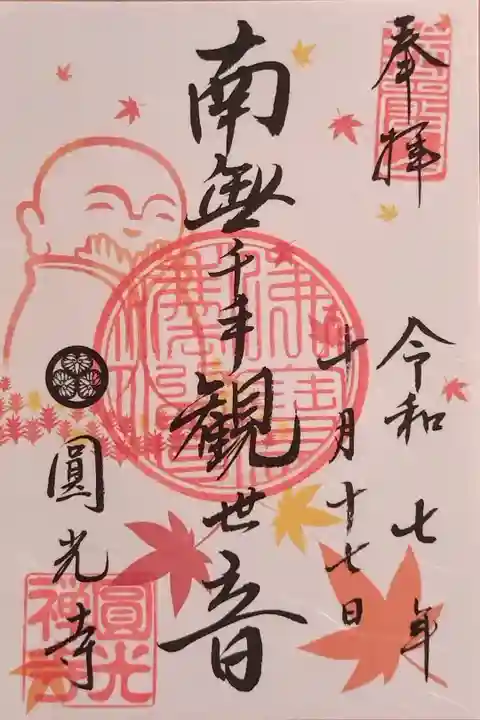 奉拝
令和七年
十月十七日
南無千手観世音
圓光寺
圓光
禅寺